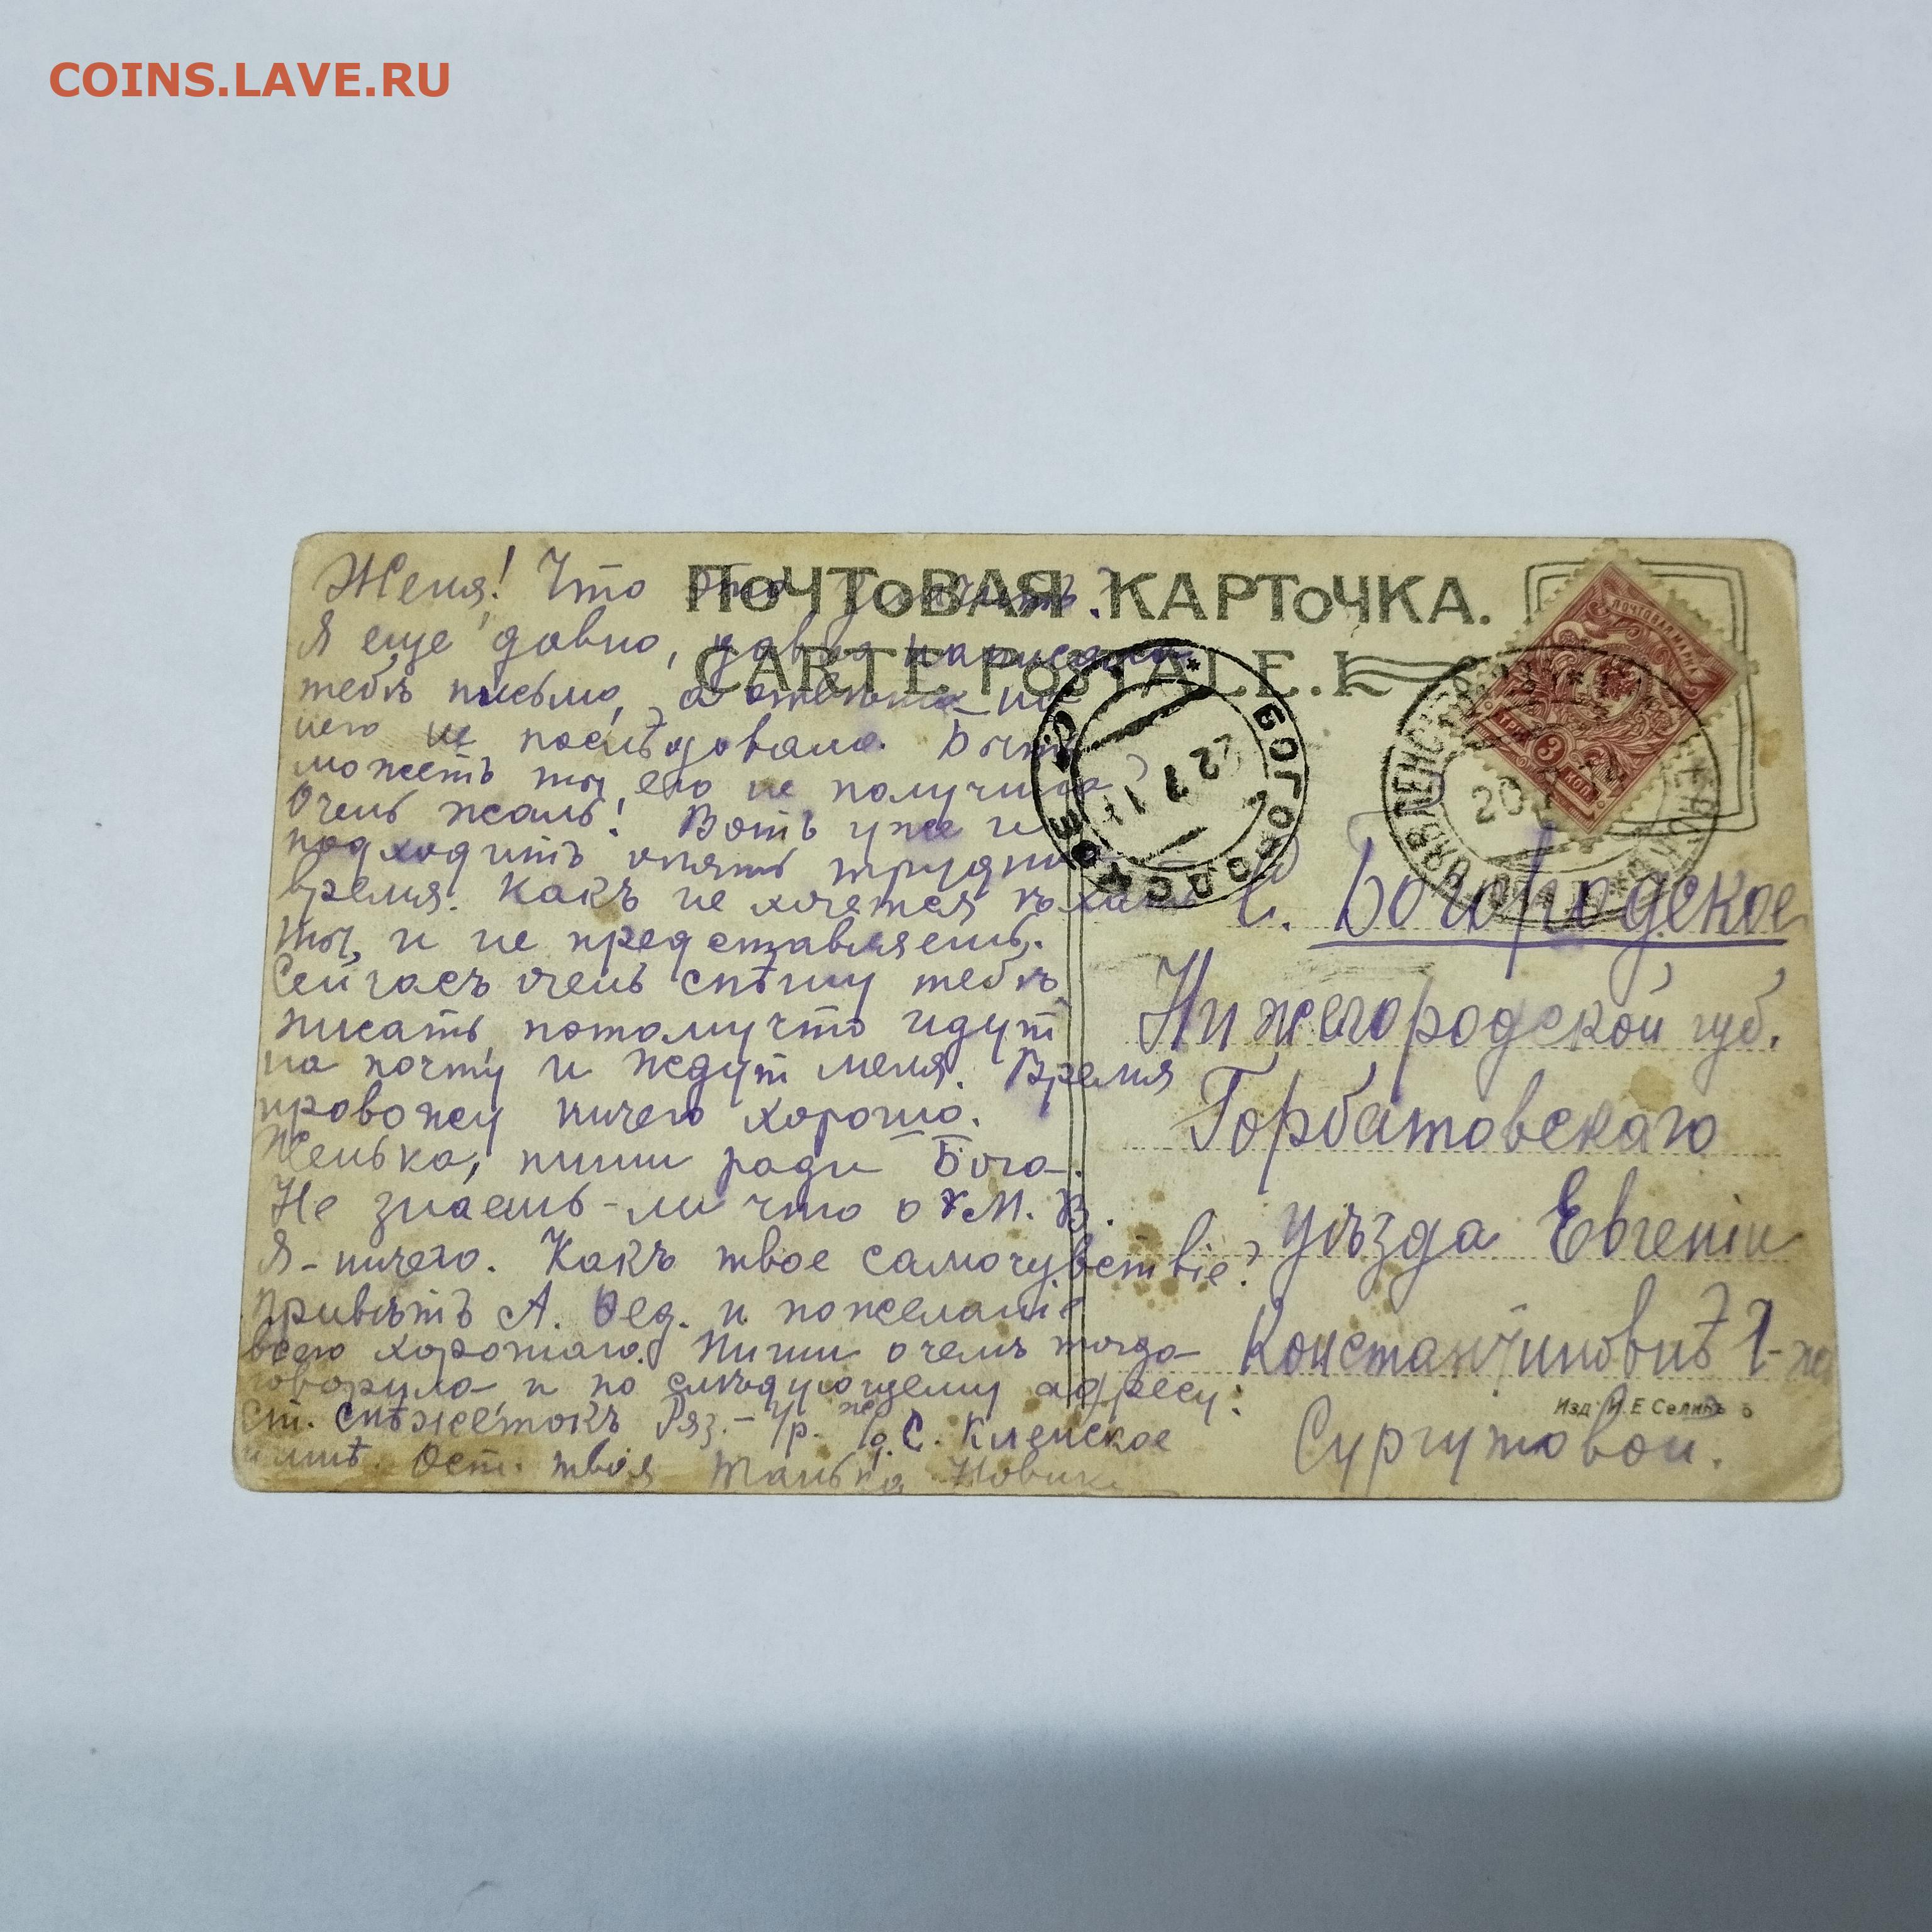 COINS.LAVE.RU
ПОЧТОВАЯ КАРТОЧКА.
CARTE POSTALE.
Женя! Что это значитъ?
Я еще давно, давно написала
тебѣ письмо, а отвѣта на
него не послѣдовало. Быть
можетъ ты его не получила?
Очень жаль! Вотъ уже и
подходитъ опять трудное
время. Какъ не хочется
ты и не представляешь.
Сейчасъ очень спѣшу тебѣ
писать, потому что идут
на почту и ждут меня. Время
провожу ничего хорошо.
Женька, пиши ради Бога.
Не знаешь-ли что о М. В.
Я-ничего. Какъ твое самочувствіе?
Привѣтъ А. Фед. и пожеланіе
всего хорошаго. Пиши о чемъ тогда
говорила и по слѣдующему адресу:
ст. Снѣжетокъ Ряз.-Ур. ж. д. С. Кленское
Ост. твоя Танька
БОГОРОДСК
22 7 11
20
ПОЧТОВАЯ МАРКА
ТРИ 3 КОП
С. Богородское
Нижегородской губ.
Горбатовскаго
уѣзда Евгеніи
Константиновнѣ
Сургутовой.
Изд. И. Е Селинъ